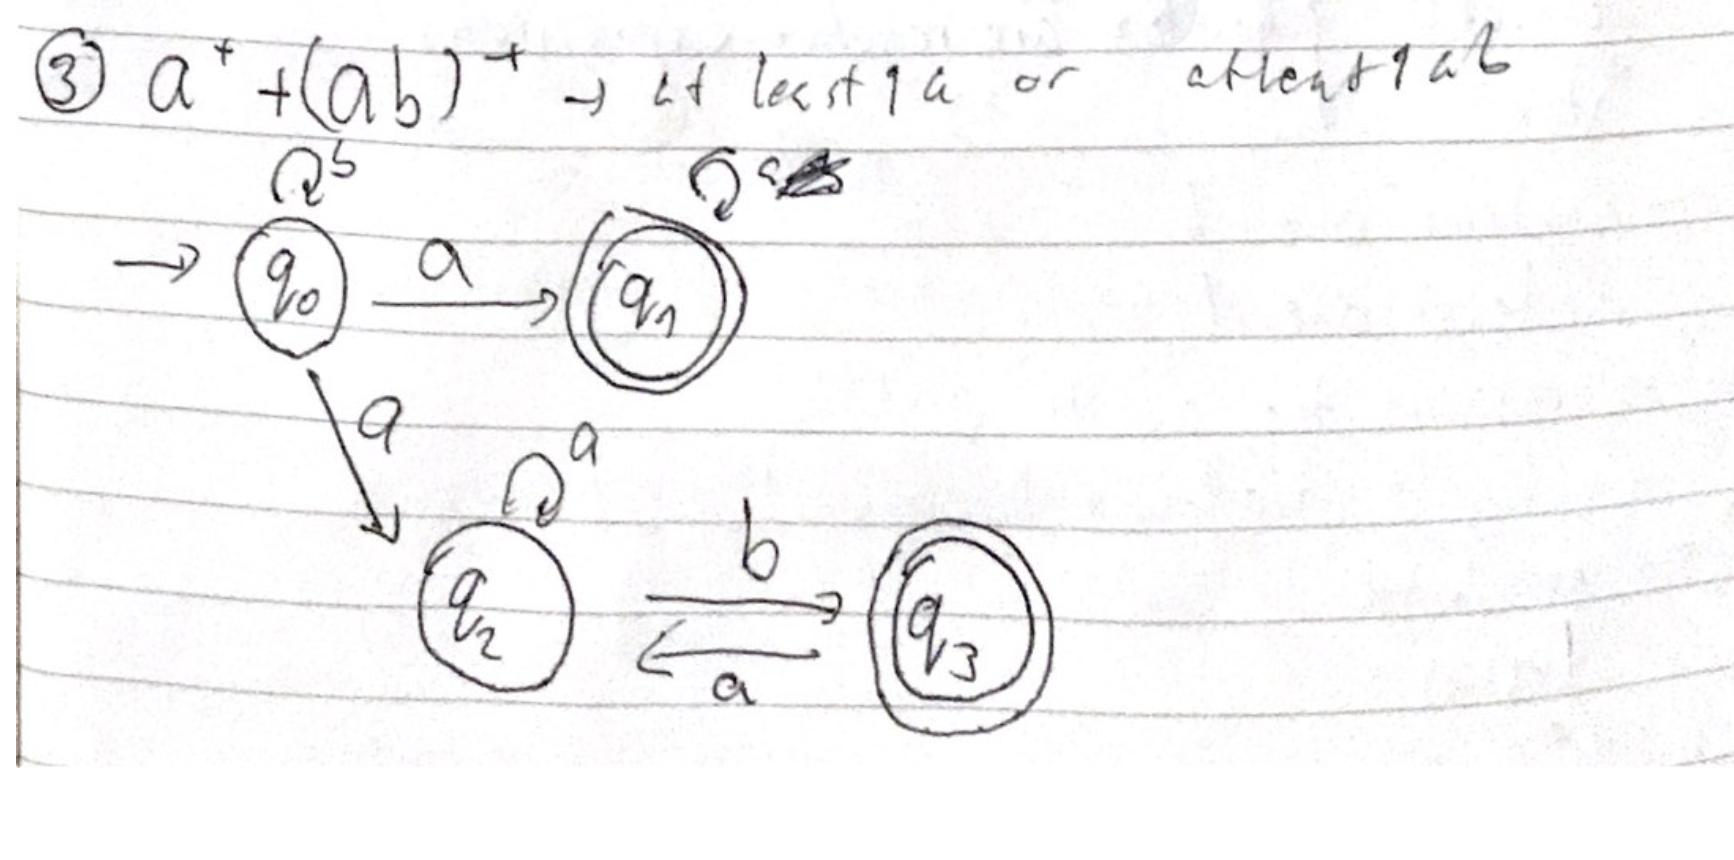 ③ a⁺ + (ab)⁺ → at least 1 a or atleast 1 ab
b a
→ q₀ a q₁
a
a
b
q₂ q₃
a